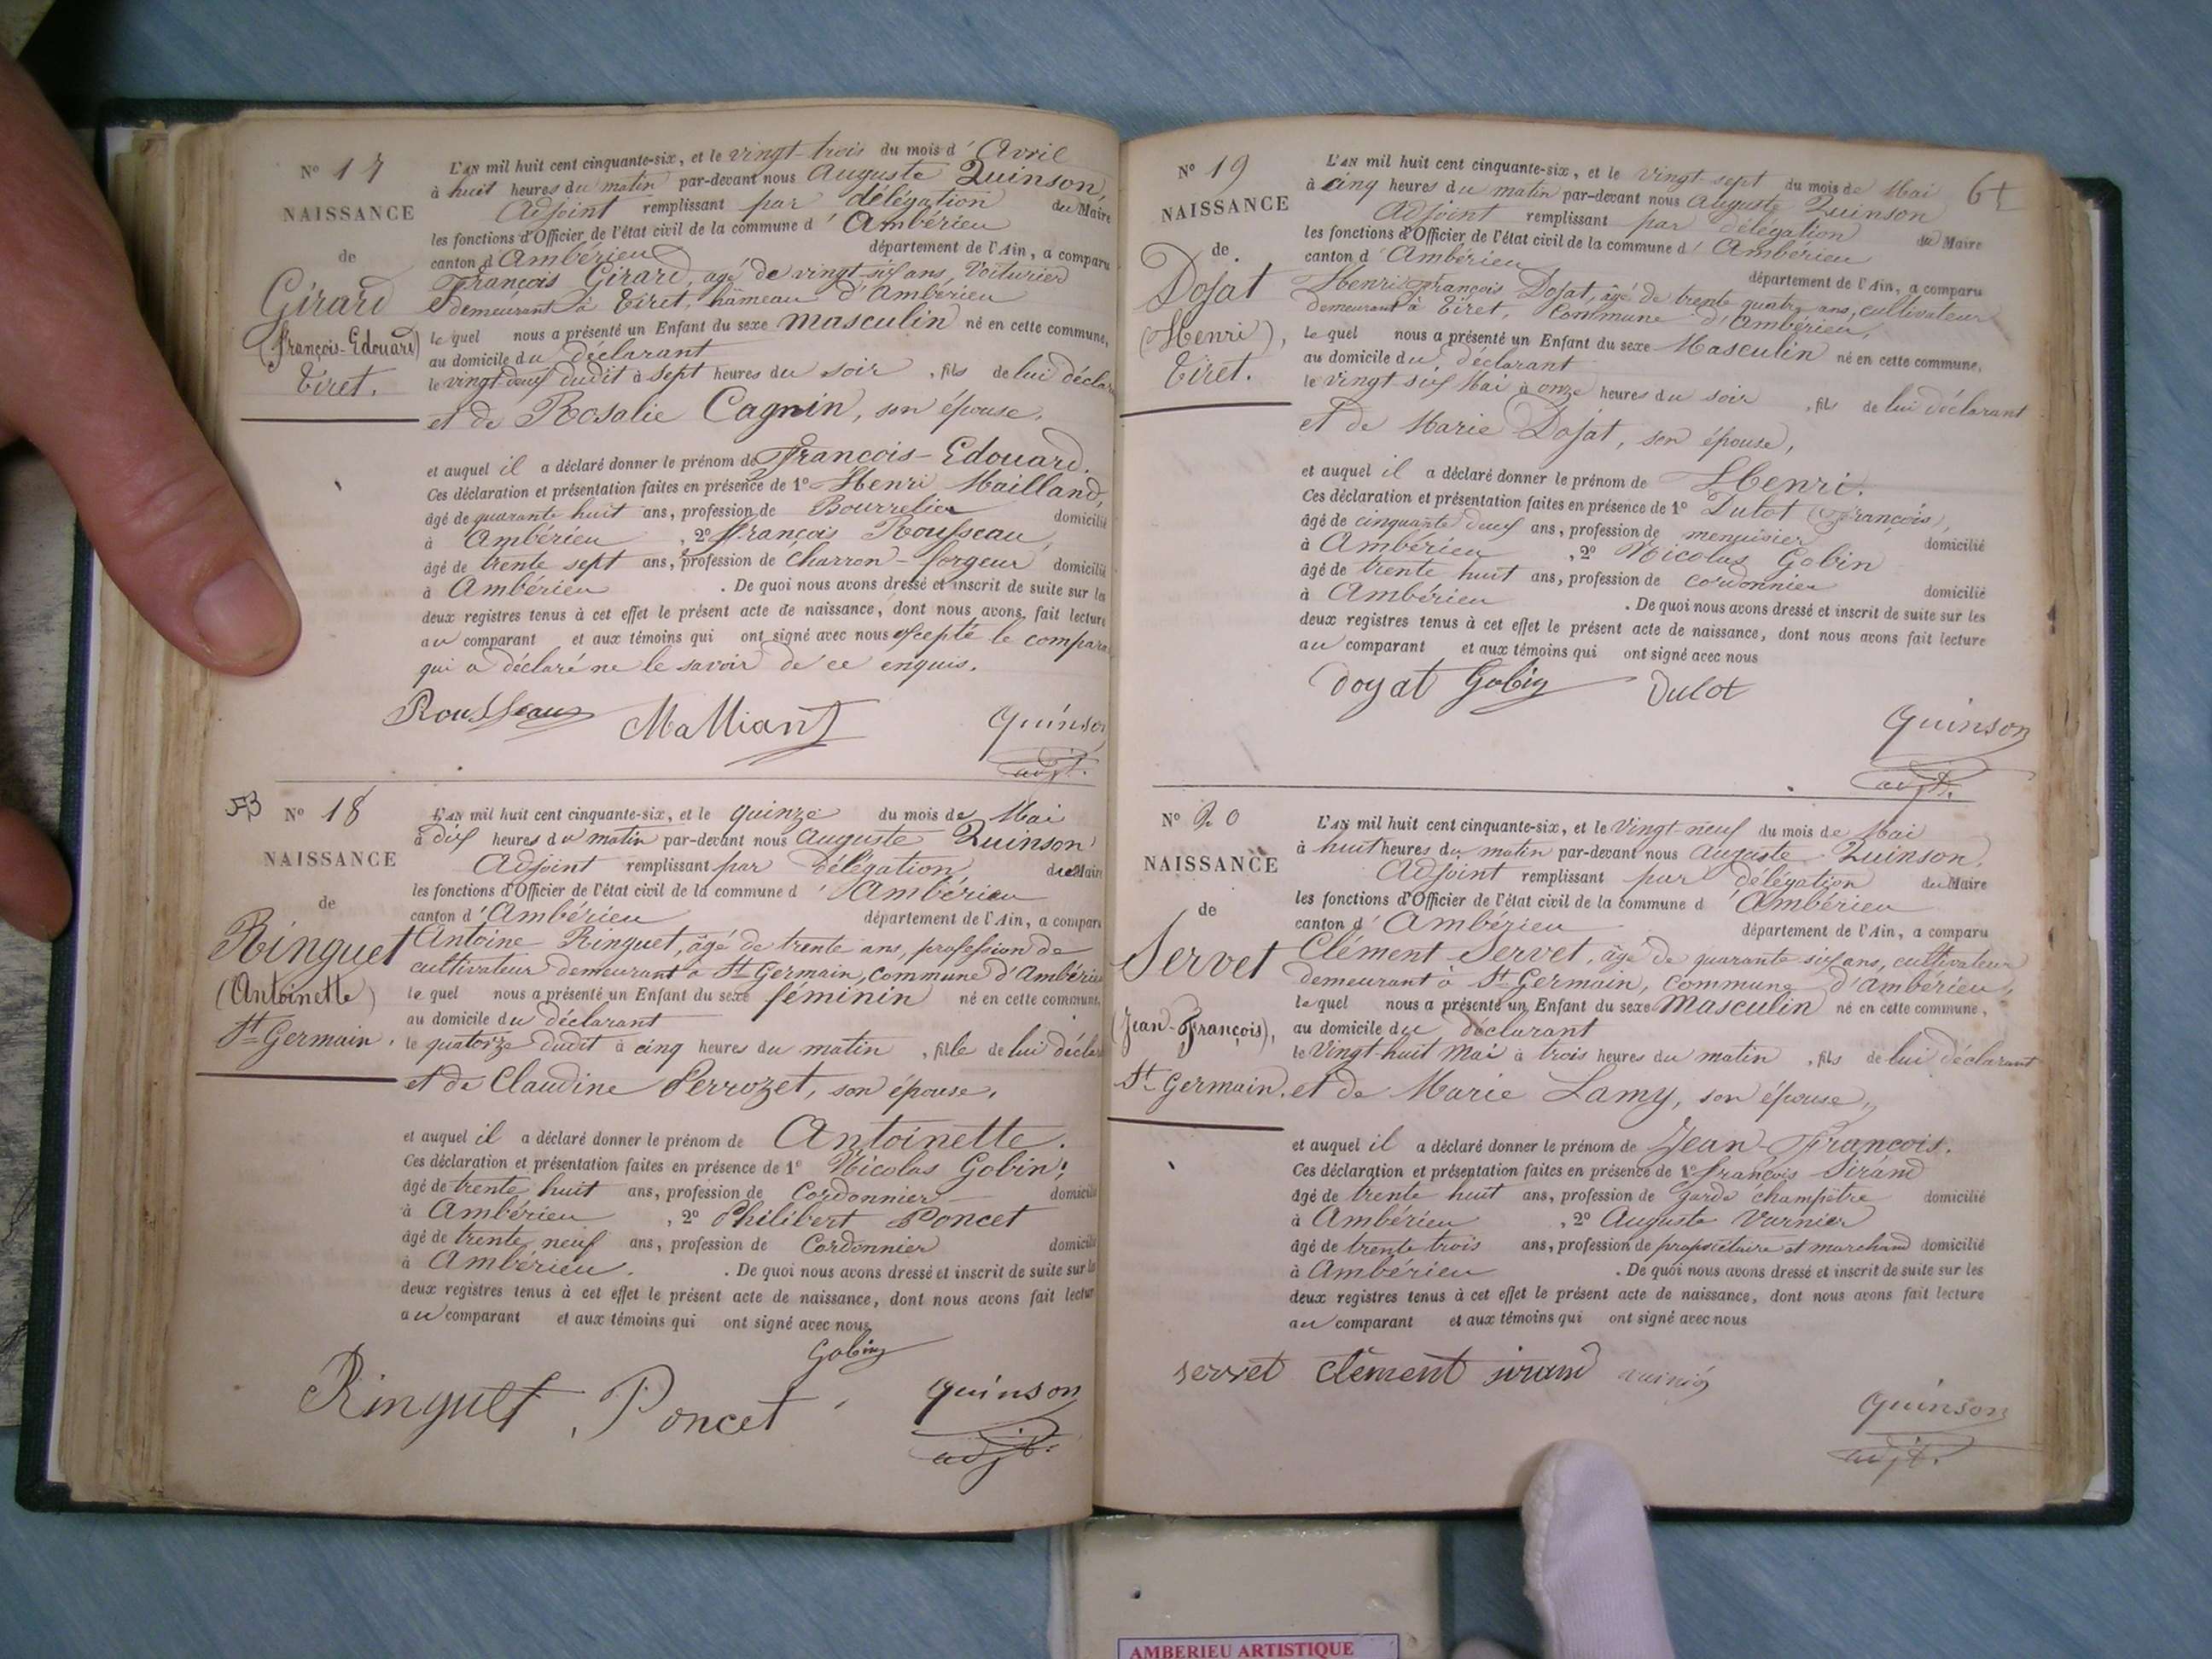 Nº 17
NAISSANCE
de
Girard
(François-Edouard)
Tiret.
L'AN mil huit cent cinquante-six, et le vingt-trois du mois d'Avril
à huit heures du matin par-devant nous Auguste Quinson,
Adjoint remplissant par délégation du Maire
les fonctions d'Officier de l'état civil de la commune d'Ambérieu
canton d'Ambérieu département de l'Ain, a comparu
François Girard, agé de vingt-six ans, Voiturier
demeurant à Tiret, hameau d'Ambérieu
le quel nous a présenté un Enfant du sexe masculin né en cette commune,
au domicile du déclarant
le vingt-deux dudit à sept heures du soir, fils de lui déclar
et de Rosalie Cagnin, son épouse.
et auquel il a déclaré donner le prénom de François-Edouard.
Ces déclaration et présentation faites en présence de 1º Henri Mailland,
âgé de quarante huit ans, profession de Bourrelier domicilié
à Ambérieu, 2º François Rousseau,
âgé de trente sept ans, profession de charron-forgeur domicilié
à Ambérieu. De quoi nous avons dressé et inscrit de suite sur les
deux registres tenus à cet effet le présent acte de naissance, dont nous avons fait lecture
au comparant et aux témoins qui ont signé avec nous excepté le compara
qui a déclaré ne le savoir de ce enquis.
Rousseau Malliant Quinson
adjt.
53
Nº 18
NAISSANCE
de
Ringuet
(Antoinette)
St Germain.
L'AN mil huit cent cinquante-six, et le quinze du mois de Mai
à dix heures du matin par-devant nous Auguste Quinson
Adjoint remplissant par délégation du Maire
les fonctions d'Officier de l'état civil de la commune d'Ambérieu
canton d'Ambérieu département de l'Ain, a comparu
Antoine Ringuet, âgé de trente ans, profession de
cultivateur demeurant à St Germain, commune d'Ambérieu
le quel nous a présenté un Enfant du sexe féminin né en cette commune,
au domicile du déclarant
le quatorze dudit à cinq heures du matin, fille de lui déclar
et de Claudine Perrozet, son épouse.
et auquel il a déclaré donner le prénom de Antoinette.
Ces déclaration et présentation faites en présence de 1º Nicolas Gobin,
âgé de trente huit ans, profession de Cordonnier domicilié
à Ambérieu, 2º Philibert Poncet
âgé de trente neuf ans, profession de Cordonnier domicilié
à Ambérieu. De quoi nous avons dressé et inscrit de suite sur les
deux registres tenus à cet effet le présent acte de naissance, dont nous avons fait lectur
au comparant et aux témoins qui ont signé avec nous
Gobin
Ringuet, Poncet Quinson
adjt.
61
Nº 19
NAISSANCE
de
Dojat
(Henri),
Tiret.
L'AN mil huit cent cinquante-six, et le vingt-sept du mois de Mai
à cinq heures du matin par-devant nous Auguste Quinson
Adjoint remplissant par délégation du Maire
les fonctions d'Officier de l'état civil de la commune d'Ambérieu
canton d'Ambérieu département de l'Ain, a comparu
Henri François Dojat, âgé de trente quatre ans, cultivateur
demeurant à Tiret, Commune d'Ambérieu,
le quel nous a présenté un Enfant du sexe Masculin né en cette commune,
au domicile du déclarant
le vingt six Mai à onze heures du soir, fils de lui déclarant
et de Marie Dojat, son épouse,
et auquel il a déclaré donner le prénom de Henri.
Ces déclaration et présentation faites en présence de 1º Dulot (François),
âgé de cinquante deux ans, profession de menuisier domicilié
à Ambérieu, 2º Nicolas Gobin
âgé de trente huit ans, profession de cordonnier domicilié
à Ambérieu. De quoi nous avons dressé et inscrit de suite sur les
deux registres tenus à cet effet le présent acte de naissance, dont nous avons fait lecture
au comparant et aux témoins qui ont signé avec nous
Doyat Gobin Dulot
Quinson
adjt.
Nº 20
NAISSANCE
de
Servet
(Jean-François),
St Germain.
L'AN mil huit cent cinquante-six, et le Vingt-neuf du mois de Mai
à huit heures du matin par-devant nous Auguste Quinson,
Adjoint remplissant par délégation du Maire
les fonctions d'Officier de l'état civil de la commune d'Ambérieu
canton d'Ambérieu département de l'Ain, a comparu
Clément Servet, âgé de quarante six ans, cultivateur
demeurant à St Germain, commune d'Ambérieu,
le quel nous a présenté un Enfant du sexe Masculin né en cette commune,
au domicile du déclarant
le Vingt-huit Mai à trois heures du matin, fils de lui déclarant
et de Marie Lamy, son épouse,
et auquel il a déclaré donner le prénom de Jean-François.
Ces déclaration et présentation faites en présence de 1º François Sirand
âgé de trente huit ans, profession de garde champêtre domicilié
à Ambérieu, 2º Auguste Varnier
âgé de trente trois ans, profession de propriétaire et marchand domicilié
à Ambérieu. De quoi nous avons dressé et inscrit de suite sur les
deux registres tenus à cet effet le présent acte de naissance, dont nous avons fait lecture
au comparant et aux témoins qui ont signé avec nous
servet clément sirand
Quinson
adjt.
AMBERIEU ARTISTIQUE